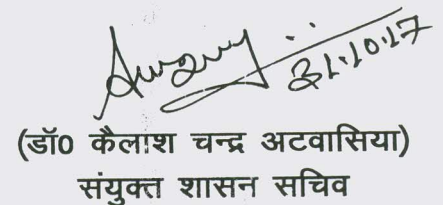 31.10.17
(डॉ0 कैलाश चन्द्र अटवासिया)
संयुक्त शासन सचिव